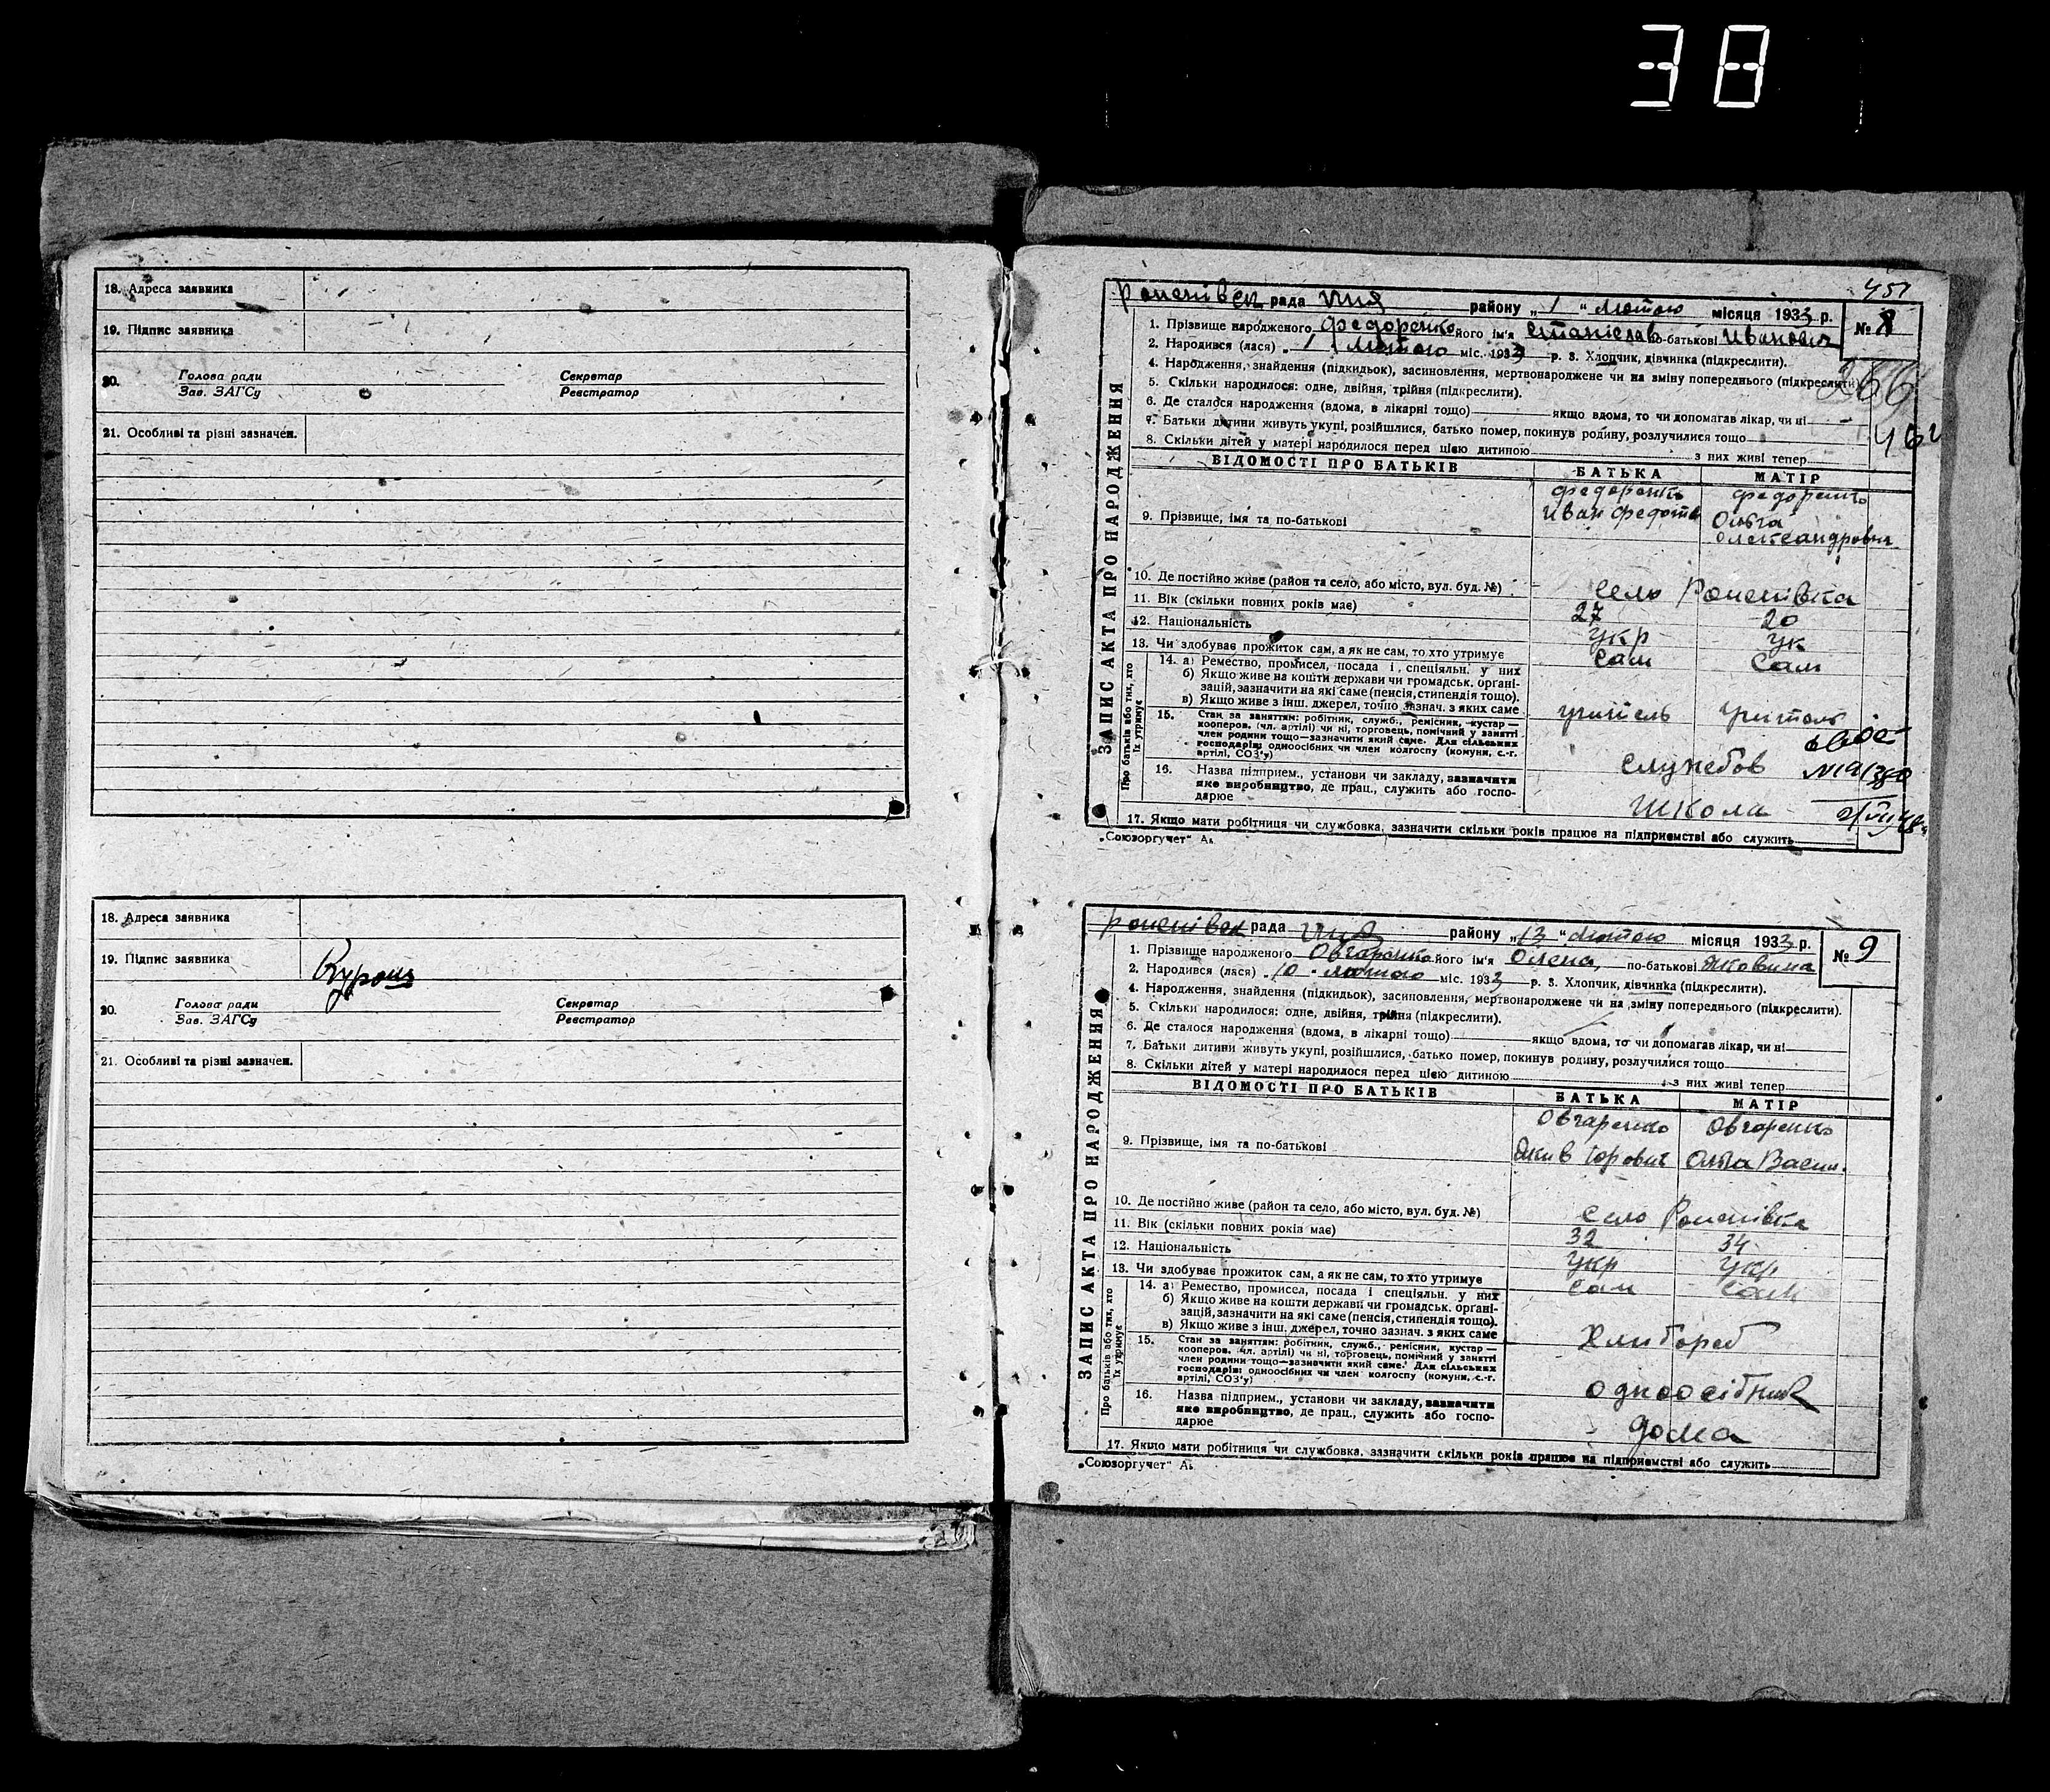 38
18. Адреса заявника
19. Підпис заявника
20. Голова ради Секретар
Зав. ЗАГСу Реєстратор
21. Особливі та різні зазначен.
18. Адреса заявника
19. Підпис заявника
20. Голова ради Секретар
Зав. ЗАГСу Реєстратор
21. Особливі та різні зазначен.
451
рада району „1“ Лютого місяця 1933 р.
№ 8
1. Прізвище народженого Федоренко його ім'я Станіслав по-батькові Иванович
2. Народився (лася) „1“ Лютого міс. 1933 р. 3. Хлопчик, дівчинка (підкреслити).
4. Народження, знайдення (підкидьок), засиновлення, мертвонароджене чи на зміну попереднього (підкреслити).
5. Скільки народилося: одне, двійня, трійня (підкреслити).
6. Де сталося народження (вдома, в лікарні тощо) якщо вдома, то чи допомагав лікар, чи ні
7. Батьки дитини живуть укупі, розійшлися, батько помер, покинув родину, розлучилися тощо
8. Скільки дітей у матері народилося перед цією дитиною з них живі тепер
ЗАПИС АКТА ПРО НАРОДЖЕННЯ
ВІДОМОСТІ ПРО БАТЬКІВ БАТЬКА МАТІР
9. Прізвище, імя та по-батькові
Федоренко Федоренко
Иван Ольга
10. Де постійно живе (район та село, або місто, вул. буд. №) село
11. Вік (скільки повних років має) 27 20
12. Національність Укр Ук
13. Чи здобуває прожиток сам, а як не сам, то хто утримує Сам Сам
Про батьків або тих, хто їх утримує
14. а) Ремество, промисел, посада і спеціяльн. у них
б) Якщо живе на кошти держави чи громадськ. органі-
зацій, зазначити на які саме (пенсія, стипендія тощо).
в) Якщо живе з інш. джерел, точно зазнач. з яких саме учитель
15. Стан за заняттям: робітник, служб., ремісник, кустар —
кооперов. (чл. артілі) чи ні, торговець, помічний у занятті
член родини тощо—зазначити який саме. Для сільських
господарів: одноосібних чи член колгоспу (комуни, с.-г.
артілі, СОЗ'у)
Служебов
16. Назва підприєм., установи чи закладу, зазначити
яке виробництво, де прац., служить або госпо-
дарює
Школа
17. Якщо мати робітниця чи службовка, зазначити скільки років працює на підприємстві або служить
„Союзоргучет“
рада району „13“ Лютого місяця 1933 р.
№ 9
1. Прізвище народженого Овчаренко його ім'я Олена, по-батькові Яковина
2. Народився (лася) „10“ лютого міс. 1933 р. 3. Хлопчик, дівчинка (підкреслити).
4. Народження, знайдення (підкидьок), засиновлення, мертвонароджене чи на зміну попереднього (підкреслити).
5. Скільки народилося: одне, двійня, трійня (підкреслити).
6. Де сталося народження (вдома, в лікарні тощо) якщо вдома, то чи допомагав лікар, чи ні
7. Батьки дитини живуть укупі, розійшлися, батько помер, покинув родину, розлучилися тощо
8. Скільки дітей у матері народилося перед цією дитиною з них живі тепер
ЗАПИС АКТА ПРО НАРОДЖЕННЯ
ВІДОМОСТІ ПРО БАТЬКІВ БАТЬКА МАТІР
9. Прізвище, імя та по-батькові
Овчаренко Овчаренко
Ольга Васил.
10. Де постійно живе (район та село, або місто, вул. буд. №) село
11. Вік (скільки повних років має) 32 34
12. Національність Укр Укр
13. Чи здобуває прожиток сам, а як не сам, то хто утримує Сам Сам
Про батьків або тих, хто їх утримує
14. а) Ремество, промисел, посада і спеціяльн. у них
б) Якщо живе на кошти держави чи громадськ. органі-
зацій, зазначити на які саме (пенсія, стипендія тощо).
в) Якщо живе з інш. джерел, точно зазнач. з яких саме
Хлибороб
15. Стан за заняттям: робітник, служб., ремісник, кустар —
кооперов. (чл. артілі) чи ні, торговець, помічний у занятті
член родини тощо—зазначити який саме. Для сільських
господарів: одноосібних чи член колгоспу (комуни, с.-г.
артілі, СОЗ'у)
одноосібник
16. Назва підприєм., установи чи закладу, зазначити
яке виробництво, де прац., служить або госпо-
дарює
дома
17. Якщо мати робітниця чи службовка, зазначити скільки років працює на підприємстві або служить
„Союзоргучет“